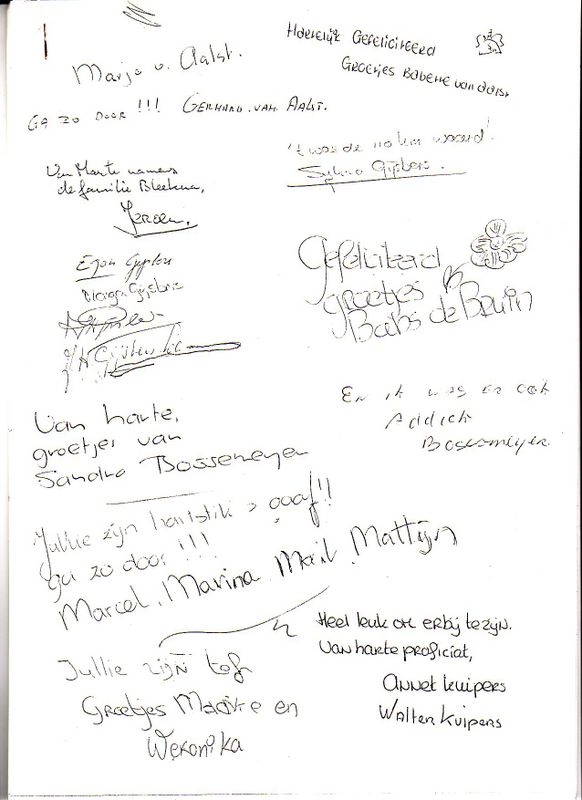 Marja v. Aalst.
Hartelijk Gefeliciteerd
Groetjes Babette van Aalst
GA ZO DOOR!!! GERHARD VAN AALST.
't was de 110 km waard!
Sylvia Gijsbers.
Van Harte namens
de familie
Jeroen.
Egon Gijsbers
Marga Gijsbers
Gefeliciteerd
groetjes
Babs de Bruin
En ik was er ook
Addick
Bossemeyer
Van harte,
groetjes van
Sandra Bossemeyer
Jullie zijn hartstikke gaaf!!
ga zo door!!!
Marcel, Marina Mattijn
Heel leuk om erbij te zijn.
Van harte proficiat,
Annet Kuipers
Walter Kuipers
Jullie zijn tof
Groetjes Maaike en
Weronika